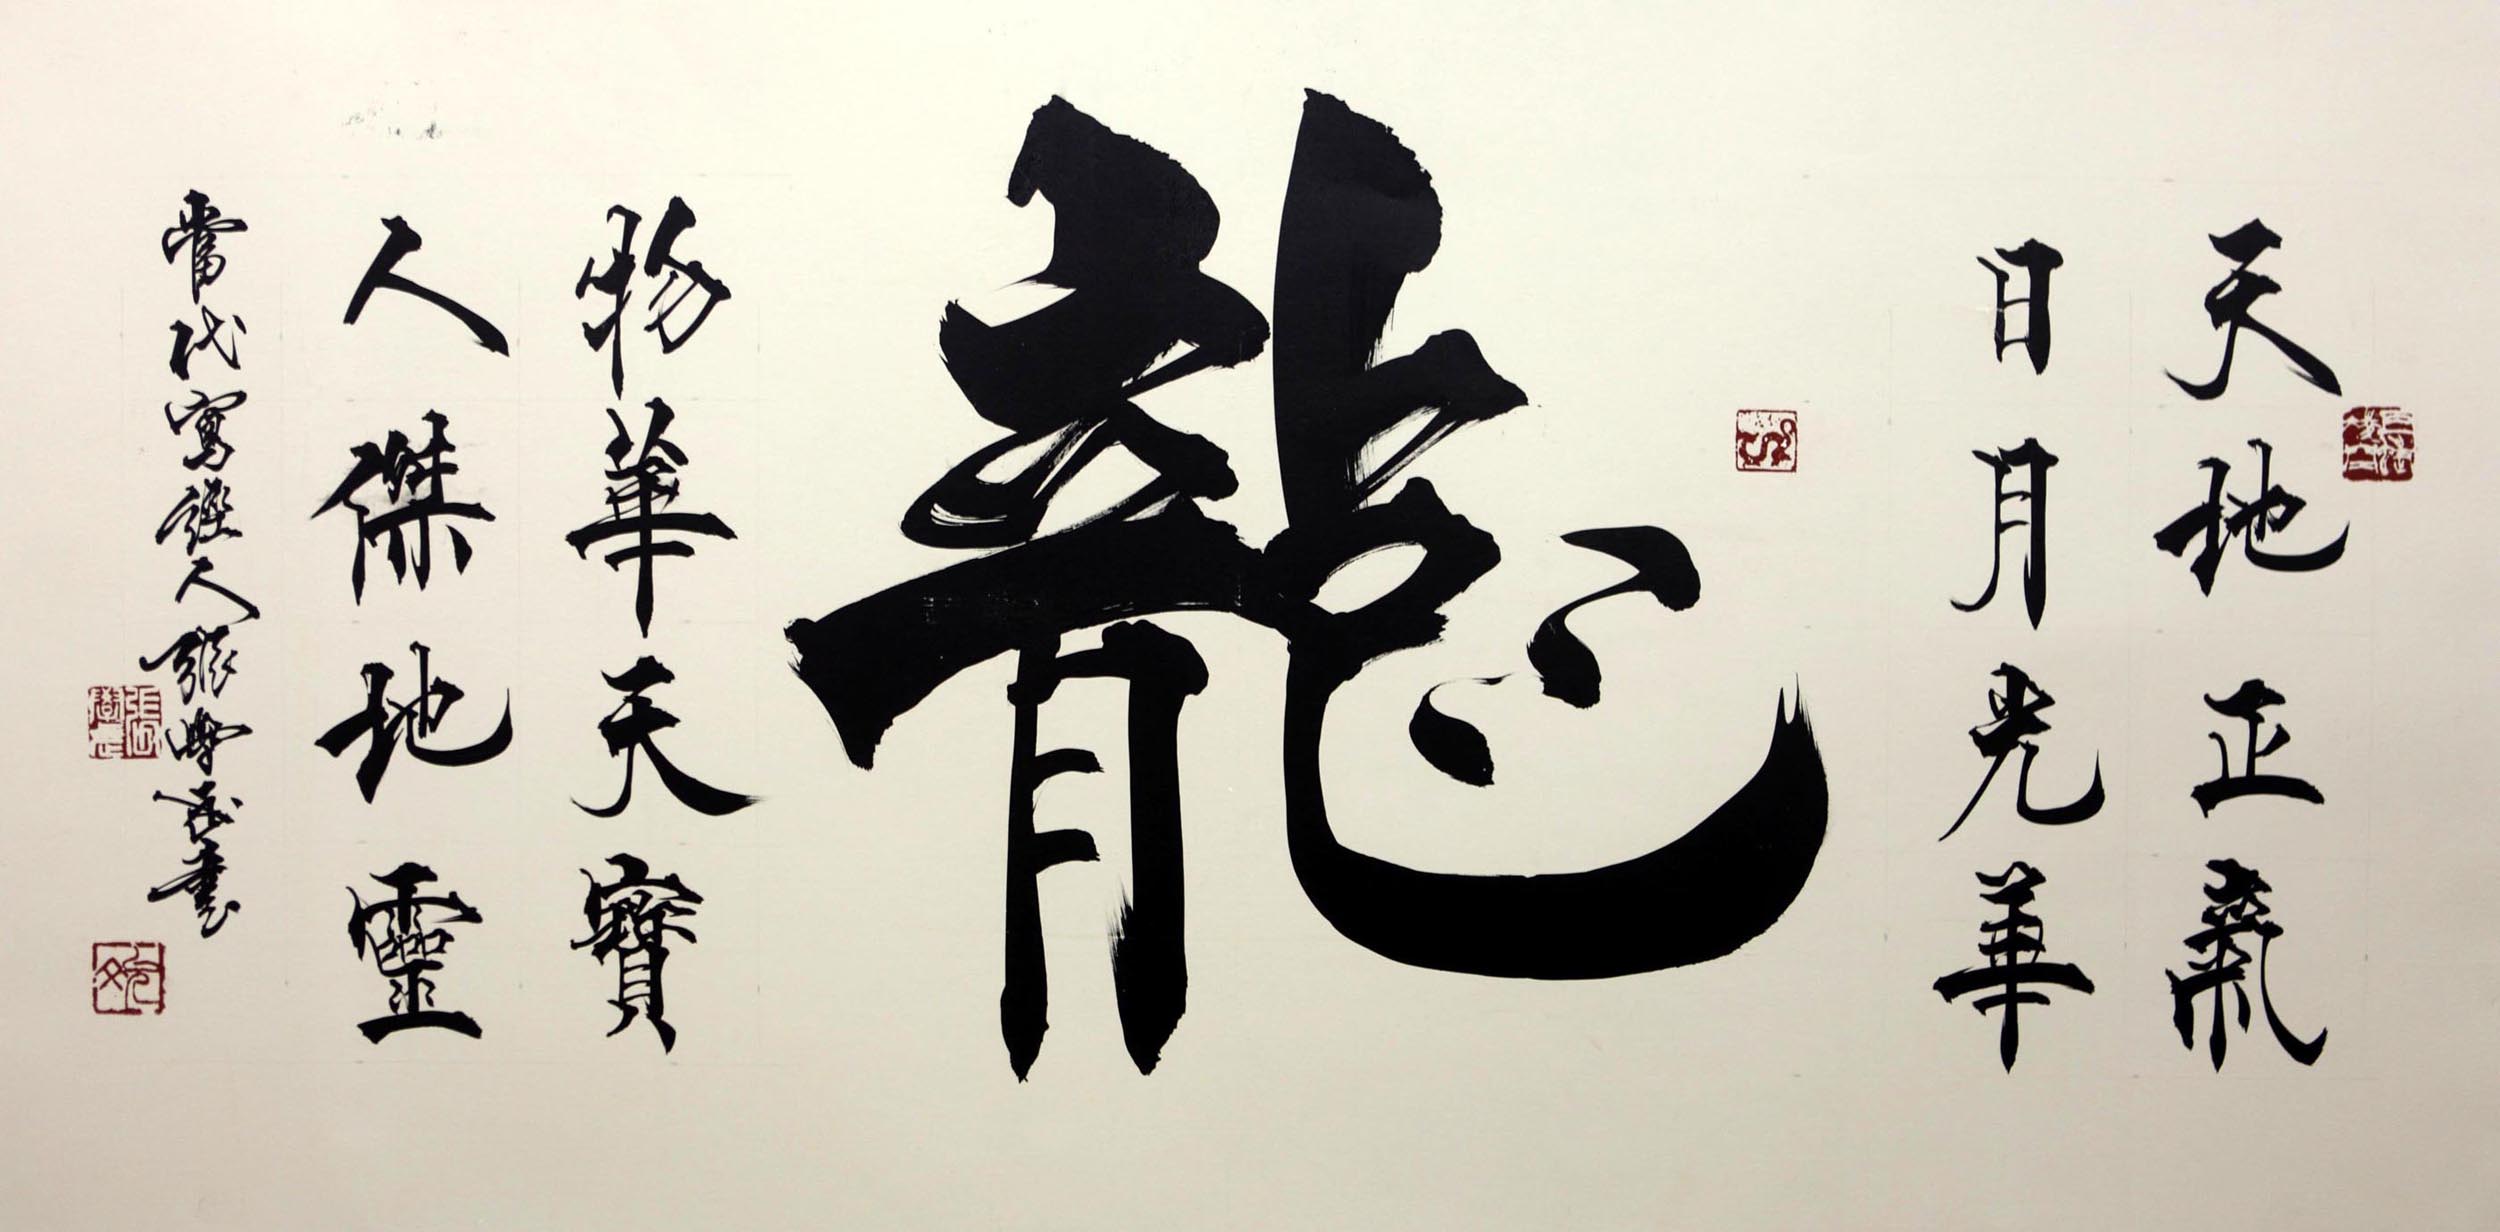 天地正氣
日月光華
龍
物華天寶
人傑地靈
當代寫經人張書